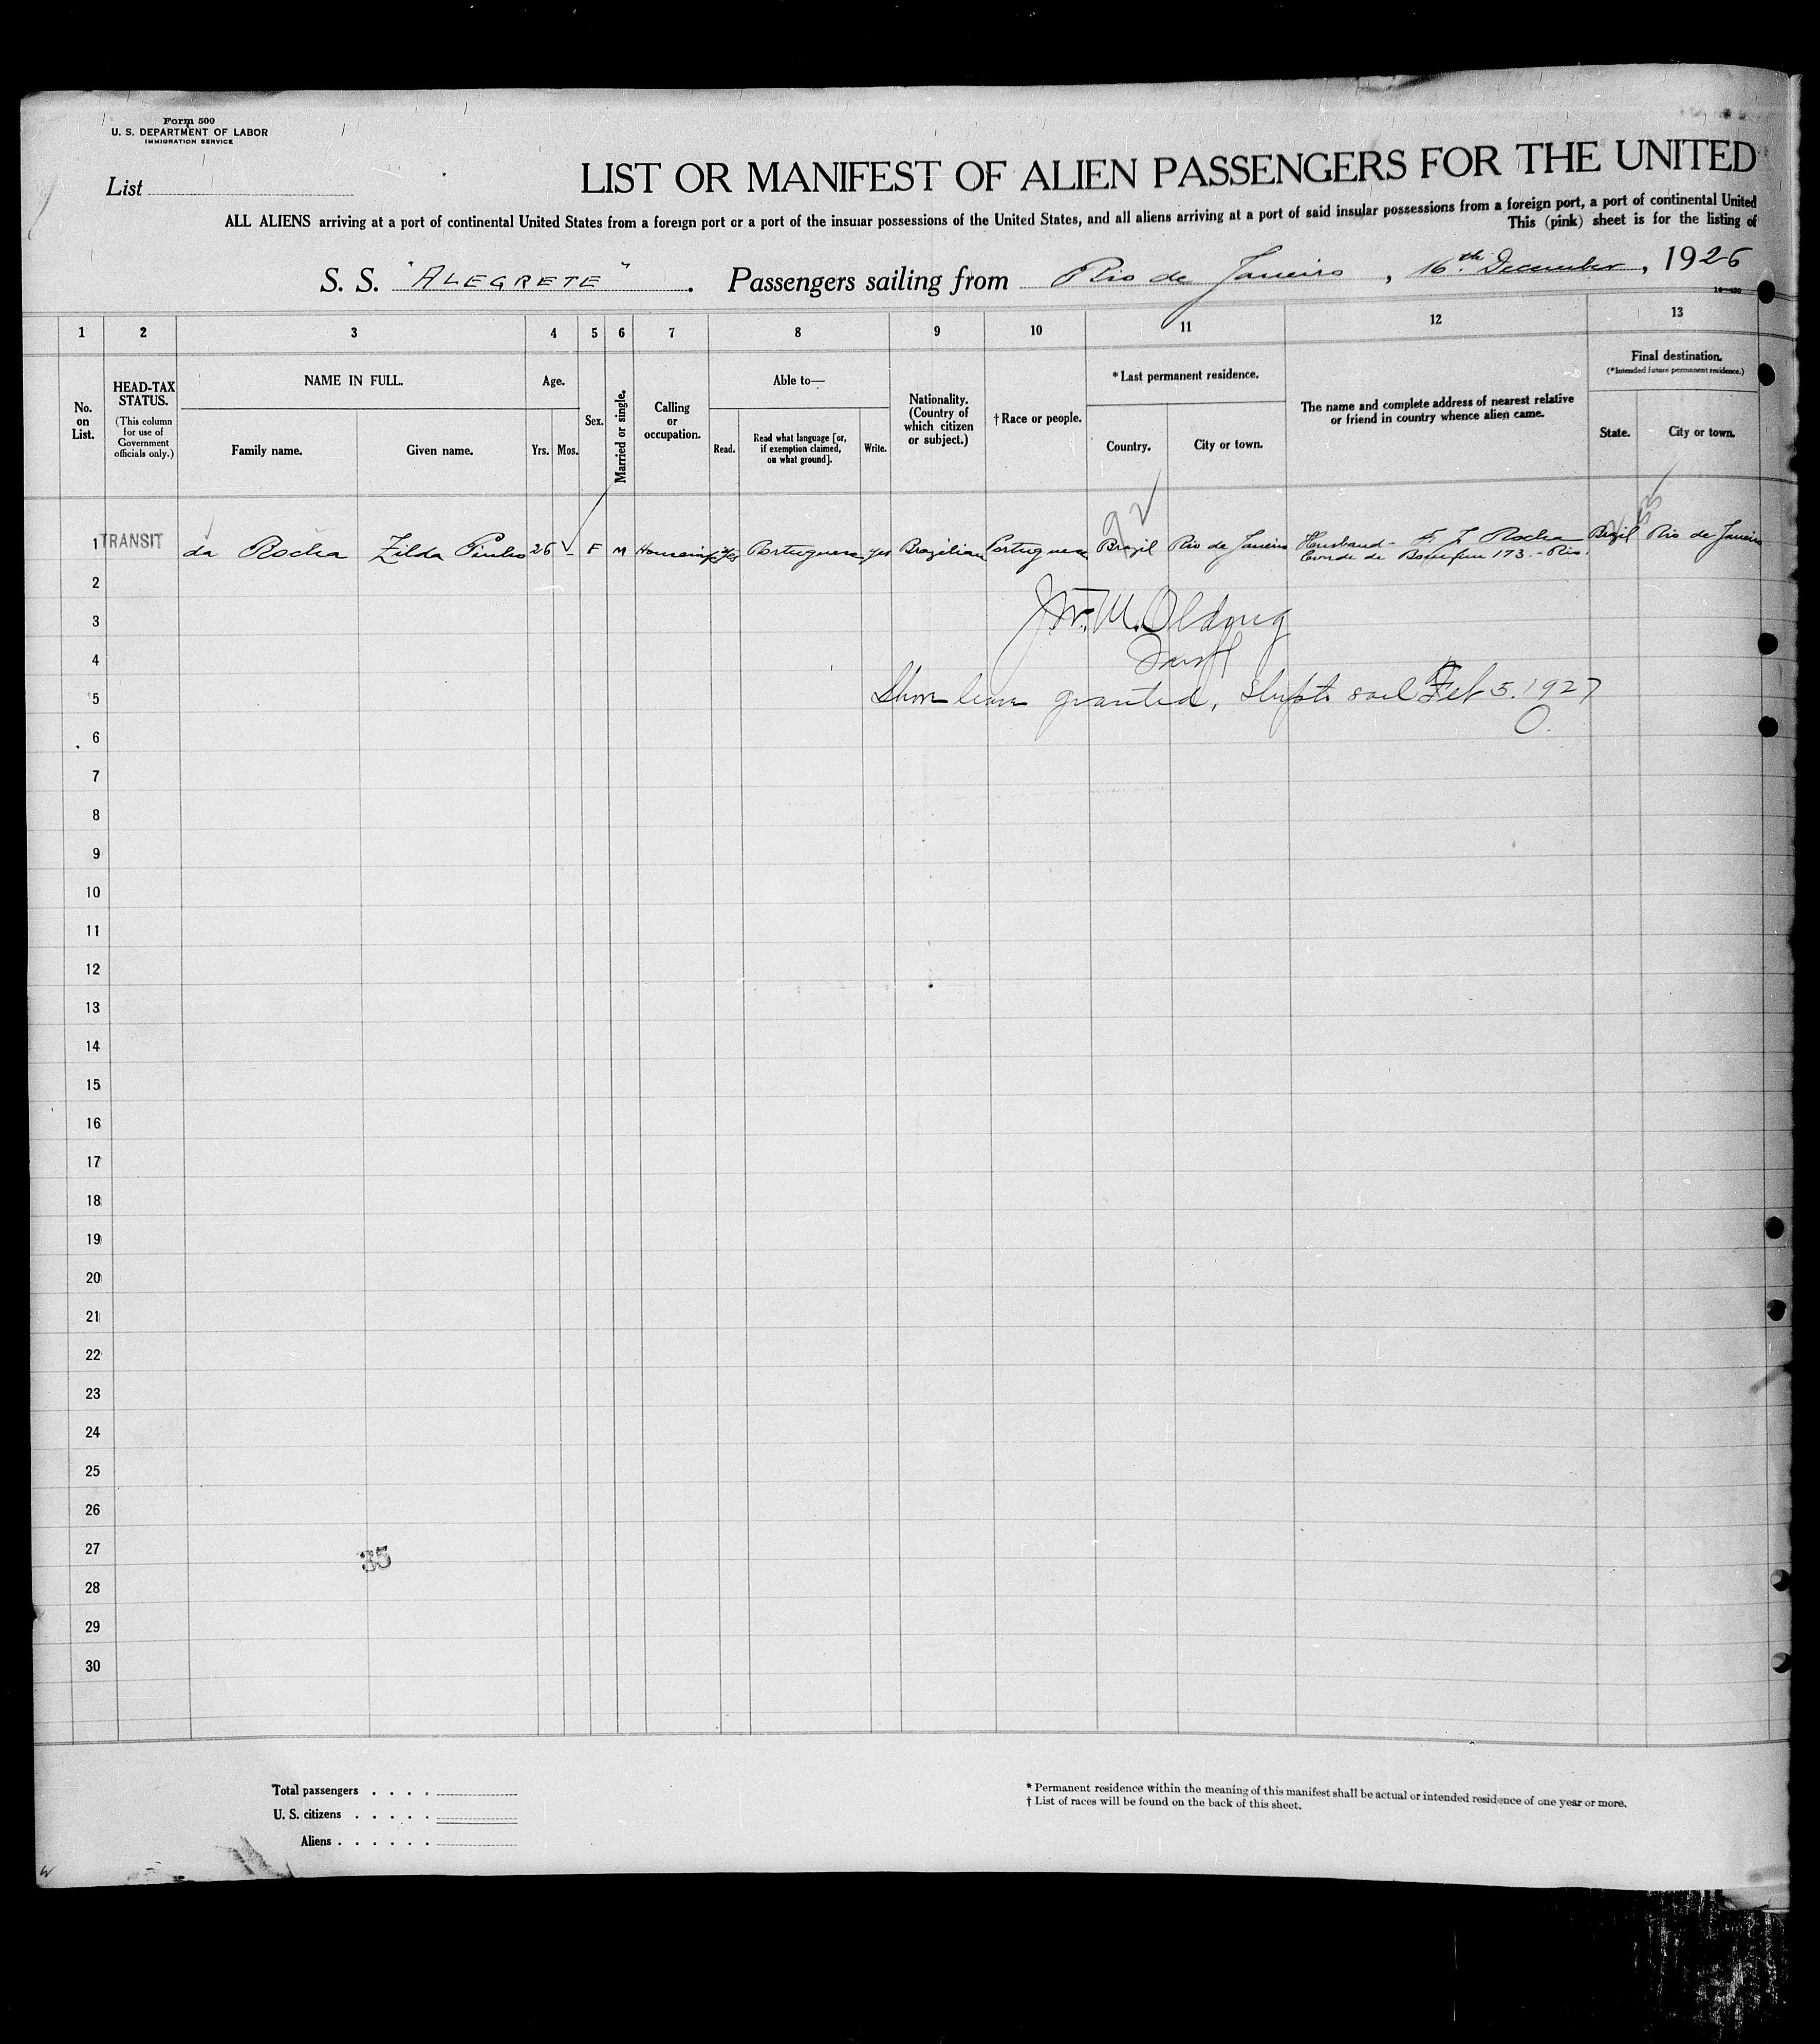 Form 500
U. S. DEPARTMENT OF LABOR
IMMIGRATION SERVICE
List
LIST OR MANIFEST OF ALIEN PASSENGERS FOR THE UNITED
ALL ALIENS arriving at a port of continental United States from a foreign port or a port of the insular possessions of the United States, and all aliens arriving at a port of said insular possessions from a foreign port, a port of continental United
This (pink) sheet is for the listing of
S. S. "ALEGRETE". Passengers sailing from Rio de Janeiro, 16th. December, 1926
1 2 3 4 5 6 7 8 9 10 11 12 13
No. on List.
HEAD-TAX STATUS.
(This column for use of Government officials only.)
NAME IN FULL.
Family name.
Given name.
Age.
Yrs. Mos.
Sex.
Married or single.
Calling or occupation.
Able to—
Read.
Read what language [or, if exemption claimed, on what ground].
Write.
Nationality. (Country of which citizen or subject.)
† Race or people.
* Last permanent residence.
Country.
City or town.
The name and complete address of nearest relative or friend in country whence alien came.
Final destination.
(* Intended future permanent residence.)
State.
City or town.
1 TRANSIT da Rocha Zilda Pinho 26 - F M Yes Portuguese yes Brazilian Portuguese Brazil Rio de Janeiro Husband - Rocha Brazil Rio de Janeiro
Conde de Bomfim 173. - Rio.
2
3
4
5 granted, ship to sail Feb 5. 1927
6
7
8
9
10
11
12
13
14
15
16
17
18
19
20
21
22
23
24
25
26
27
35
28
29
30
Total passengers . . . .
U. S. citizens . . . . .
Aliens . . . . . .
* Permanent residence within the meaning of this manifest shall be actual or intended residence of one year or more.
† List of races will be found on the back of this sheet.